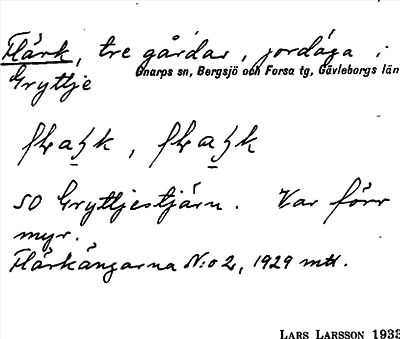 Flärk, tre gårdar, jordäga i
Gryttje
Gnarps sn, Bergsjö och Forsa tg, Gävleborgs län
SO Gryttjestjärn. Var förr
myr.
Flärkängarna N:o 2, 1929 mtl.
LARS LARSSON 1933